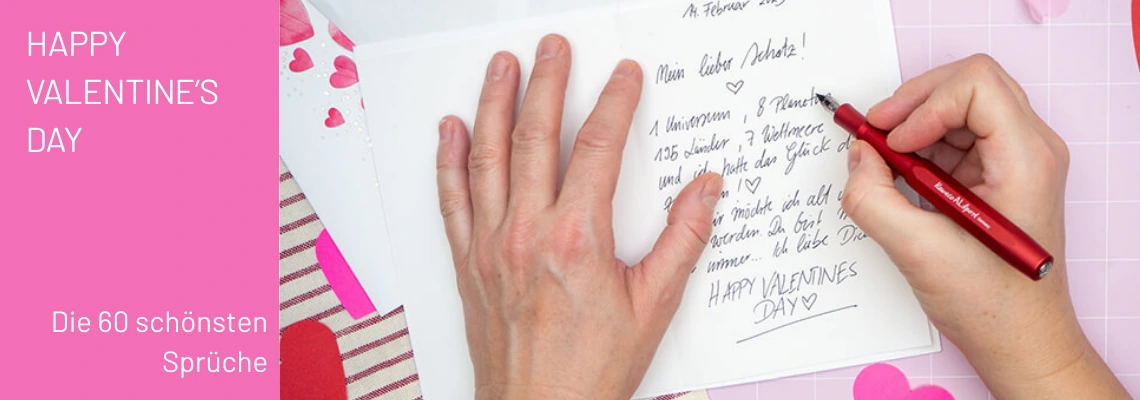 HAPPY
VALENTINE'S
DAY
Die 60 schönsten
Sprüche
14. Februar
Mein lieber Schatz!
1 Universum, 8 Planeten
195 Länder, 7 Weltmeere
und ich hatte das Glück
möchte ich alt
werden. Du bist
immer... Ich liebe
HAPPY VALENTINES
DAY
Kaweco AL Sport